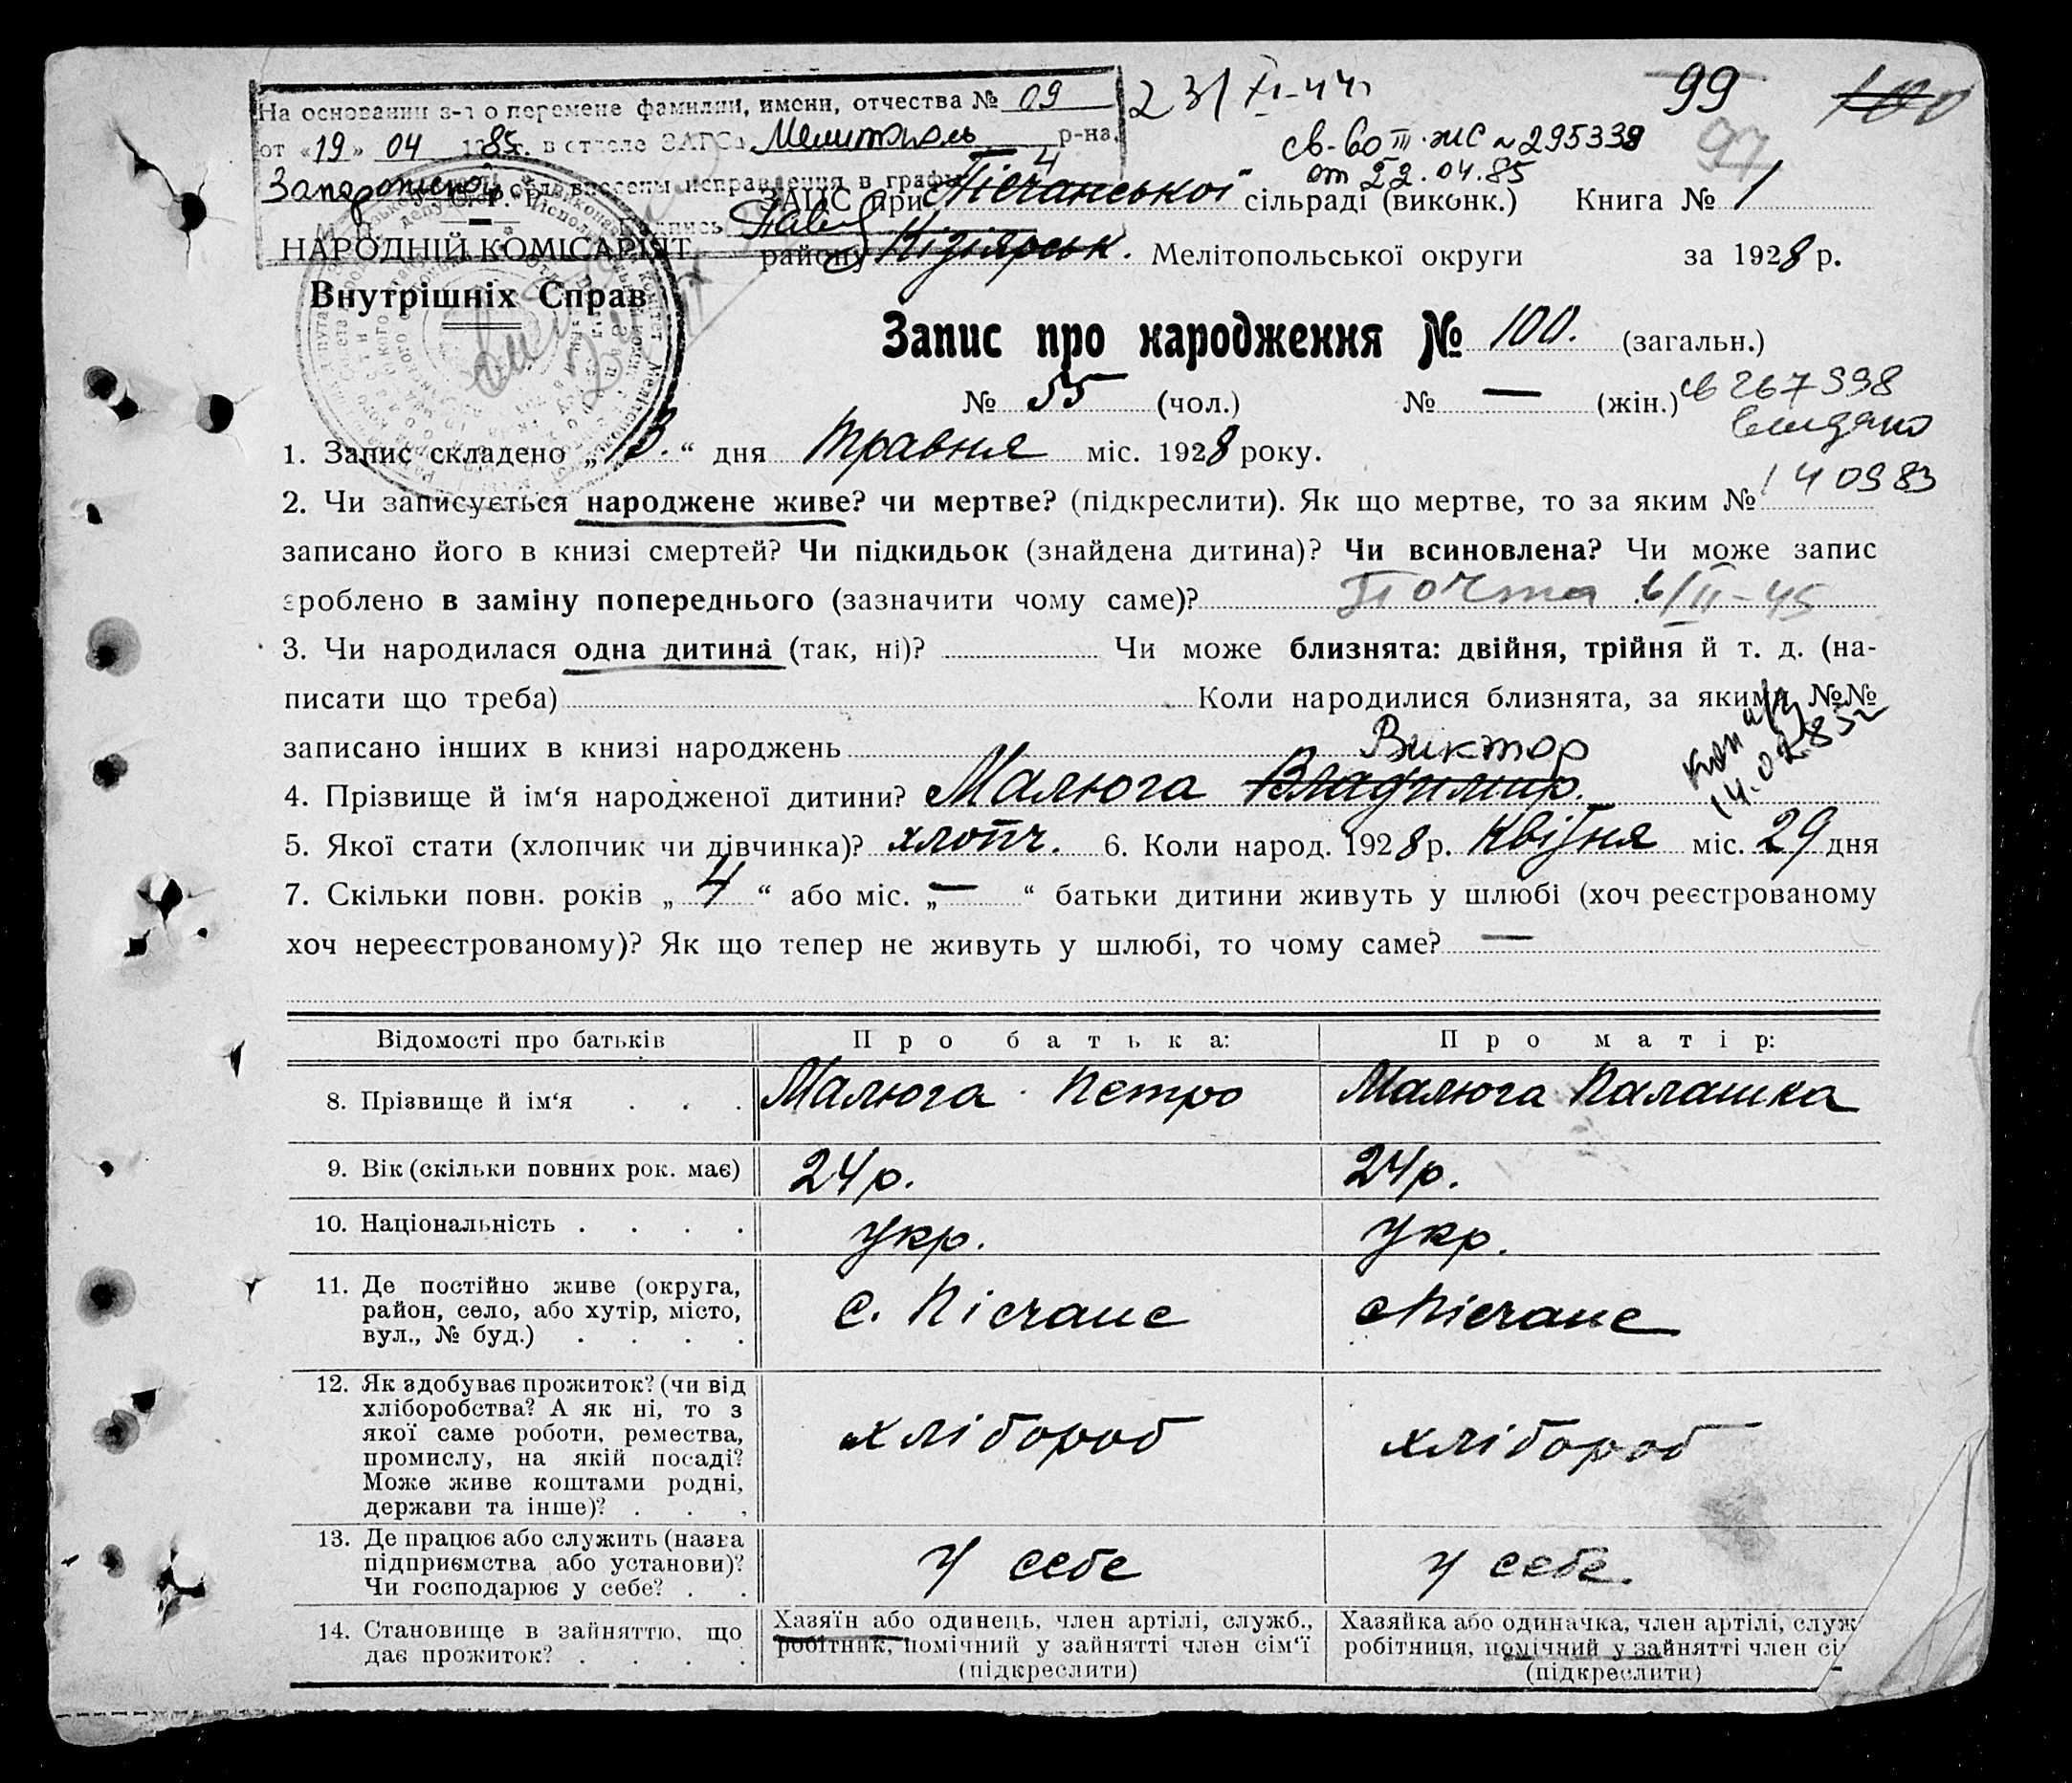 На основании з-я о перемене фамилии, имени, отчества № 09
от «19» 04 1985г. в отделе ЗАГСа Мелитополь р-на,
Запорожской обл. внесены исправления в графы 4
23/XI-44г
99
100
97
св-во III-ЖС № 295339
от 22.04.85
ЗАПИС при Пісчанської сільраді (виконк.) Книга № 1
У.С.Р.Р.
НАРОДНІЙ КОМІСАРІЯТ
району Кізіярськ. Мелітопольської округи за 1928 р.
Внутрішніх Справ
Запис про народження № 100. (загальн.)
№ 55 (чол.) № — (жін.) св 267998
видано
1. Запис складено „13.“ дня травня міс. 1928 року.
140983
2. Чи записується народжене живе? чи мертве? (підкреслити). Як що мертве, то за яким №
записано його в книзі смертей? Чи підкидьок (знайдена дитина)? Чи всиновлена? Чи може запис
зроблено в заміну попереднього (зазначити чому саме)? Почта 6/II-45
3. Чи народилася одна дитина (так, ні)? Чи може близнята: двійня, трійня й т. д. (на-
писати що треба) Коли народилися близнята, за якими №№
записано інших в книзі народжень
Виктор
14.02.85г
4. Прізвище й ім‘я народженої дитини? Малюга Владимир.
5. Якої стати (хлопчик чи дівчинка)? хлопч. 6. Коли народ. 1928 р. Квітня міс. 29 дня
7. Скільки повн. років „4“ або міс. „—“ батьки дитини живуть у шлюбі (хоч реєстрованому
хоч нереєстрованому)? Як що тепер не живуть у шлюбі, то чому саме? —
Відомості про батьків Про батька: Про матір:
8. Прізвище й ім‘я . . . Малюга Петро Малюга Палашка
9. Вік (скільки повних рок. має) 24 р. 24 р.
10. Національність . . . . укр. укр.
11. Де постійно живе (округа,
район, село, або хутір, місто,
вул., № буд.) . . . .
с. Пісчане с Пісчане
12. Як здобуває прожиток? (чи від
хліборобства? А як ні, то з
якої саме роботи, ремества,
промислу, на якій посаді?
Може живе коштами родні,
держави та інше)? . . .
хлібороб хлібороб
13. Де працює або служить (назва
підприємства або установи)?
Чи господарює у себе? . .
у себе у себе.
14. Становище в зайняттю, що
дає прожиток? . . . .
Хазяїн або одинець, член артілі, служб.,
робітник, помічний у зайнятті член сім‘ї
(підкреслити)
Хазяйка або одиначка, член артілі, служ
робітниця, помічний у зайнятті член сі
(підкреслити)